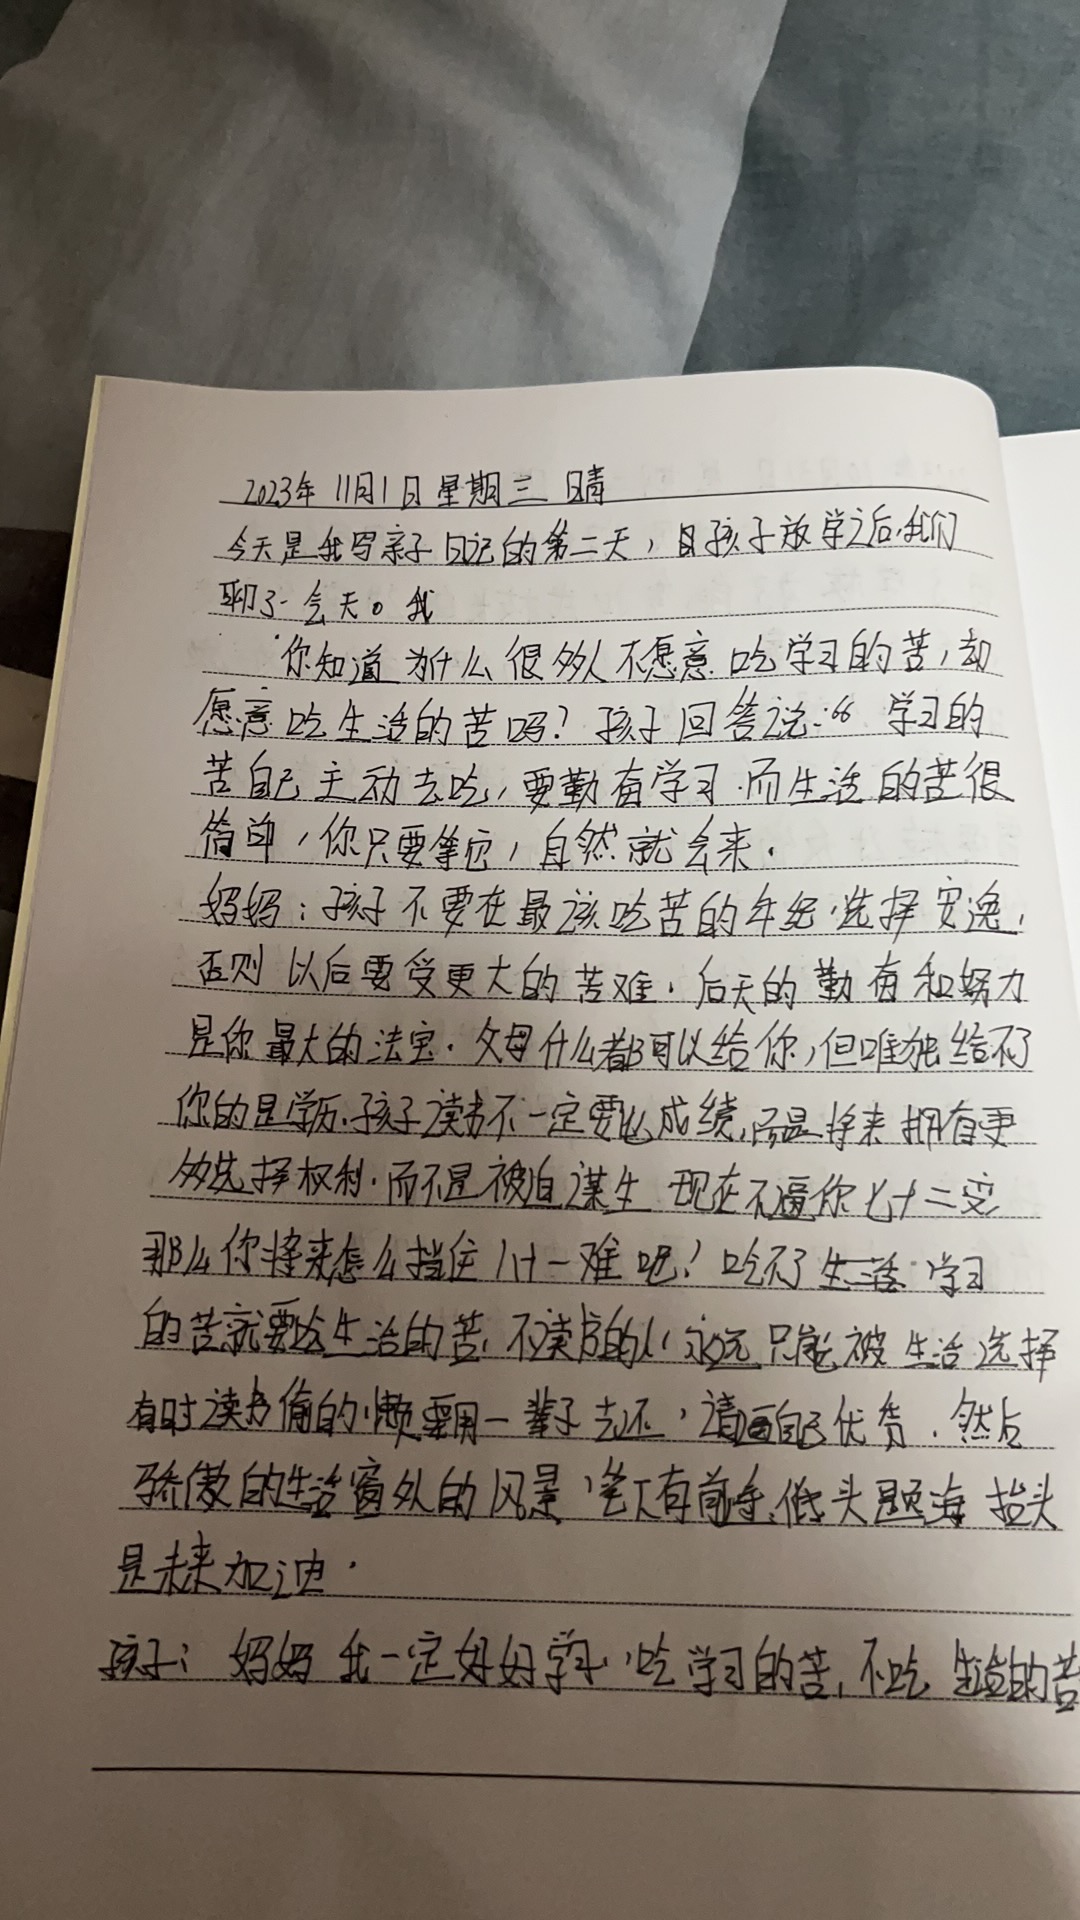 2023年 11月1日 星期三 晴
今天是我写亲子日记的第二天，自孩子放学之后，我们
聊了一会天。我
你知道为什么很多人不愿意吃学习的苦，却
愿意吃生活的苦吗？孩子回答说：“ 学习的
苦自己主动去吃，要勤奋学习.而生活的苦很
简单，你只要等它，自然就会来.
妈妈：孩子不要在最该吃苦的年纪.选择安逸.
否则以后要受更大的苦难.后天的勤奋和努力
是你最大的法宝.父母什么都可以给你，但唯独给不了
你的是学历.孩子读书不一定要 成绩，而是将来拥有更
多选择权利.而不是被迫谋生 现在不逼你七十二变
那么你将来怎么挡住八十一难呢！吃不了生活 学习
的苦就要吃生活的苦，不读书的人永远只能被生活选择
有时读书偷的懒要用一辈子去还，请 自己优 .然后
骄傲的 窗外的风景，笔下有前 .低头题海 抬头
是未来加油.
孩子：妈妈 我一定好好学习，吃学习的苦，不吃 生活的苦